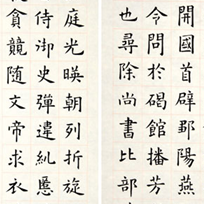 開國首辟鄒陽燕
令問於碣館播芳
也尋除尚書比部
庭光暎朝列折旋
侍御史彈違糺慝
貪競随文帝求衣